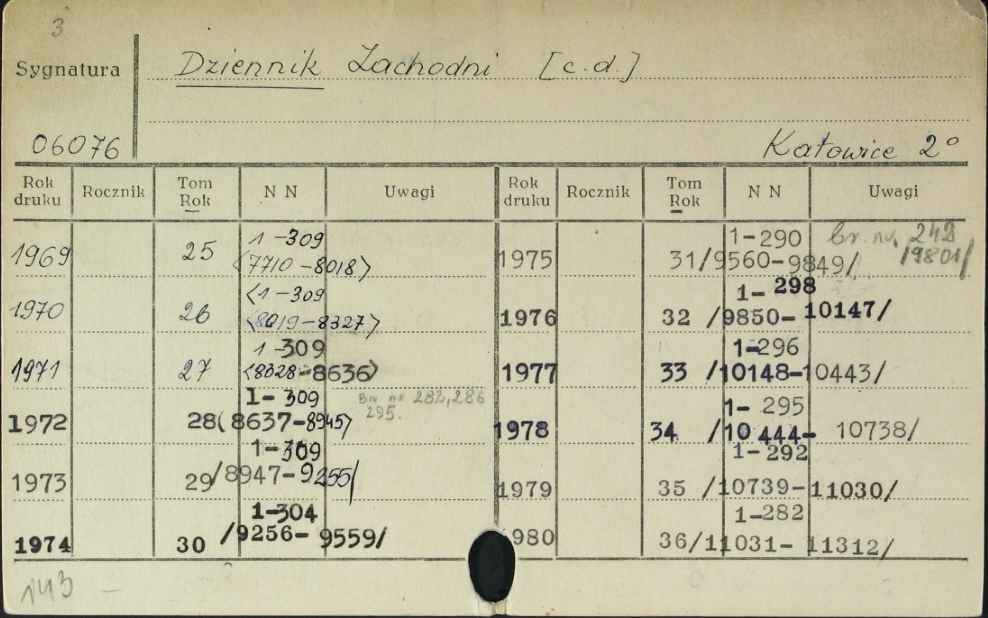 3
Sygnatura Dziennik Zachodni [c.d.]
06076 Katowice 2°
Rok druku Rocznik Tom Rok N N Uwagi Rok druku Rocznik Tom Rok N N Uwagi
1969 25 1-309 <7710-8018>
1970 26 <1-309 <8019-8327>
1971 27 1-309 <8328-8636>
1972 28 1-309 (8637-8945> Br nr 282,286 295.
1973 29 1-309 /8947-9255/
1974 30 1-304 /9256-9559/
1975 31 1-290 /9560-9849/ br. nr. 248 /9801/
1976 32 1-298 /9850-10147/
1977 33 1-296 /10148-10443/
1978 34 1-295 /10444-10738/
1979 35 1-292 /10739-11030/
1980 36 1-282 /11031-11312/
143 -